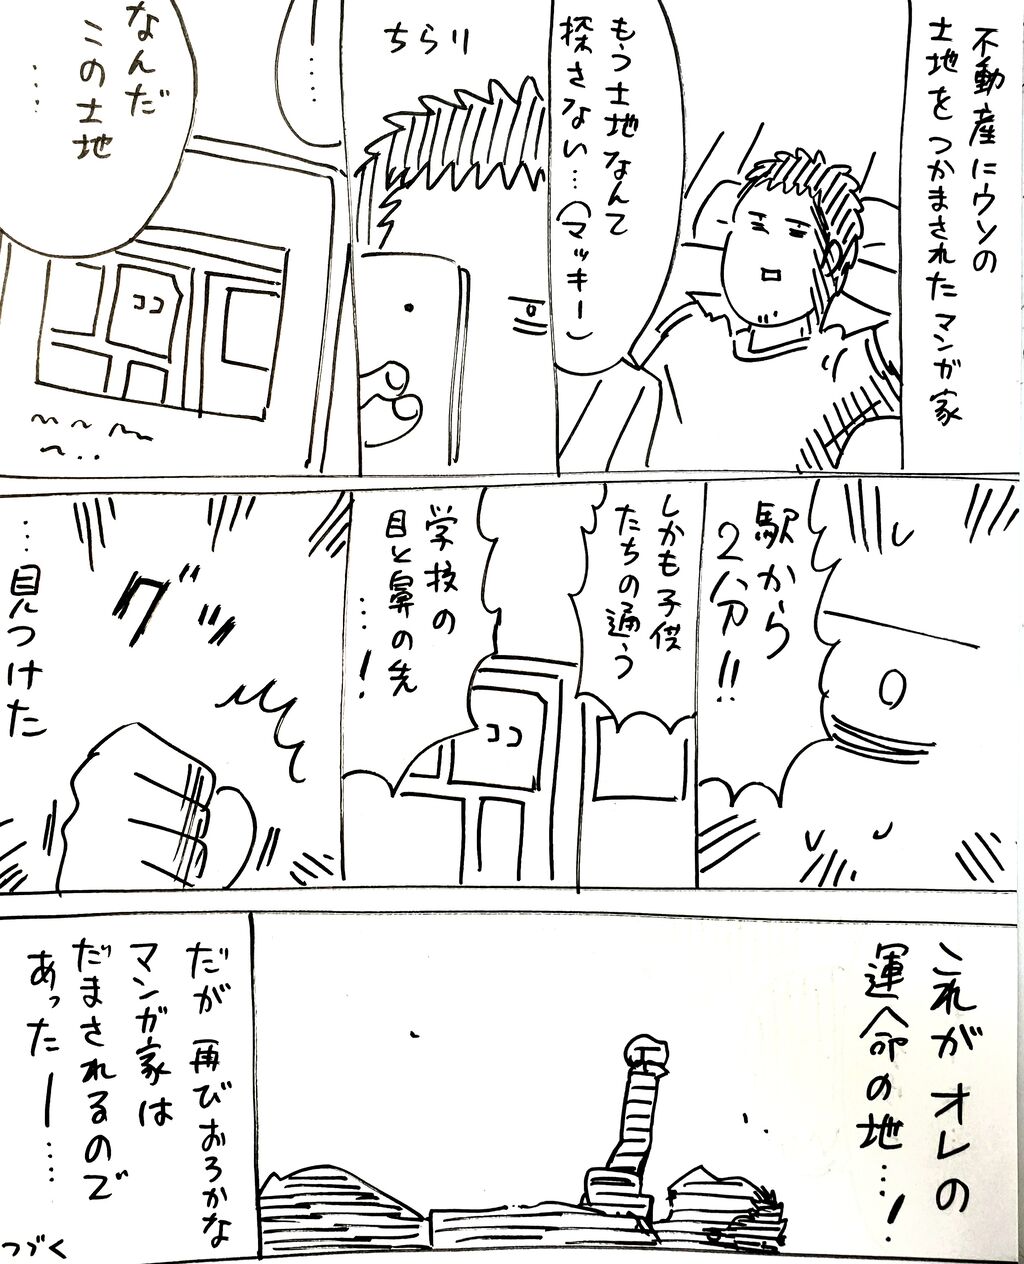 不動産にウソの
土地をつかまされたマンガ家
もう土地なんて
探さない…(マッキー)
ちらり
ー…
なんだ
この土地
…
ココ
駅から
2分!!
しかも子供
たちの通う
学校の
目と鼻の先
…!
ココ
グッ
…見つけた
これがオレの
運命の地…!
だが再びおろかな
マンガ家は
だまされるので
あったー……
つづく